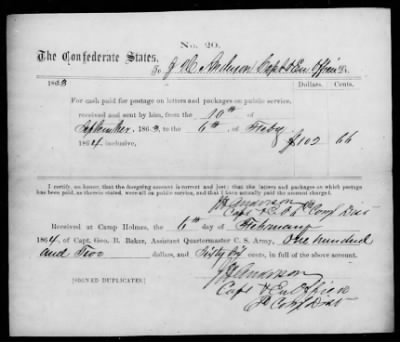 No. 20.
The Confederate States,
To J H Anderson Capt & En Officer Dr.
1863 Dollars. Cents.
For cash paid for postage on letters and packages on public service,
received and sent by him, from the 10th of
September 1863, to the 6th of Feby
1864, inclusive, $102 66
I certify, on honor, that the foregoing account is correct and just; that the letters and packages on which postage
has been paid, as therein stated, were all on public service, and that I have actually paid the amount charged.
Anderson
Capt & E. O. Cong Dist
Received at Camp Holmes, the 6th day of February
1864, of Capt. Geo. B. Baker, Assistant Quartermaster C. S. Army, One hundred
and Two dollars, and Sixty six cents, in full of the above account.
Anderson
Capt & En Officer
Cong Dist
[SIGNED DUPLICATES.]